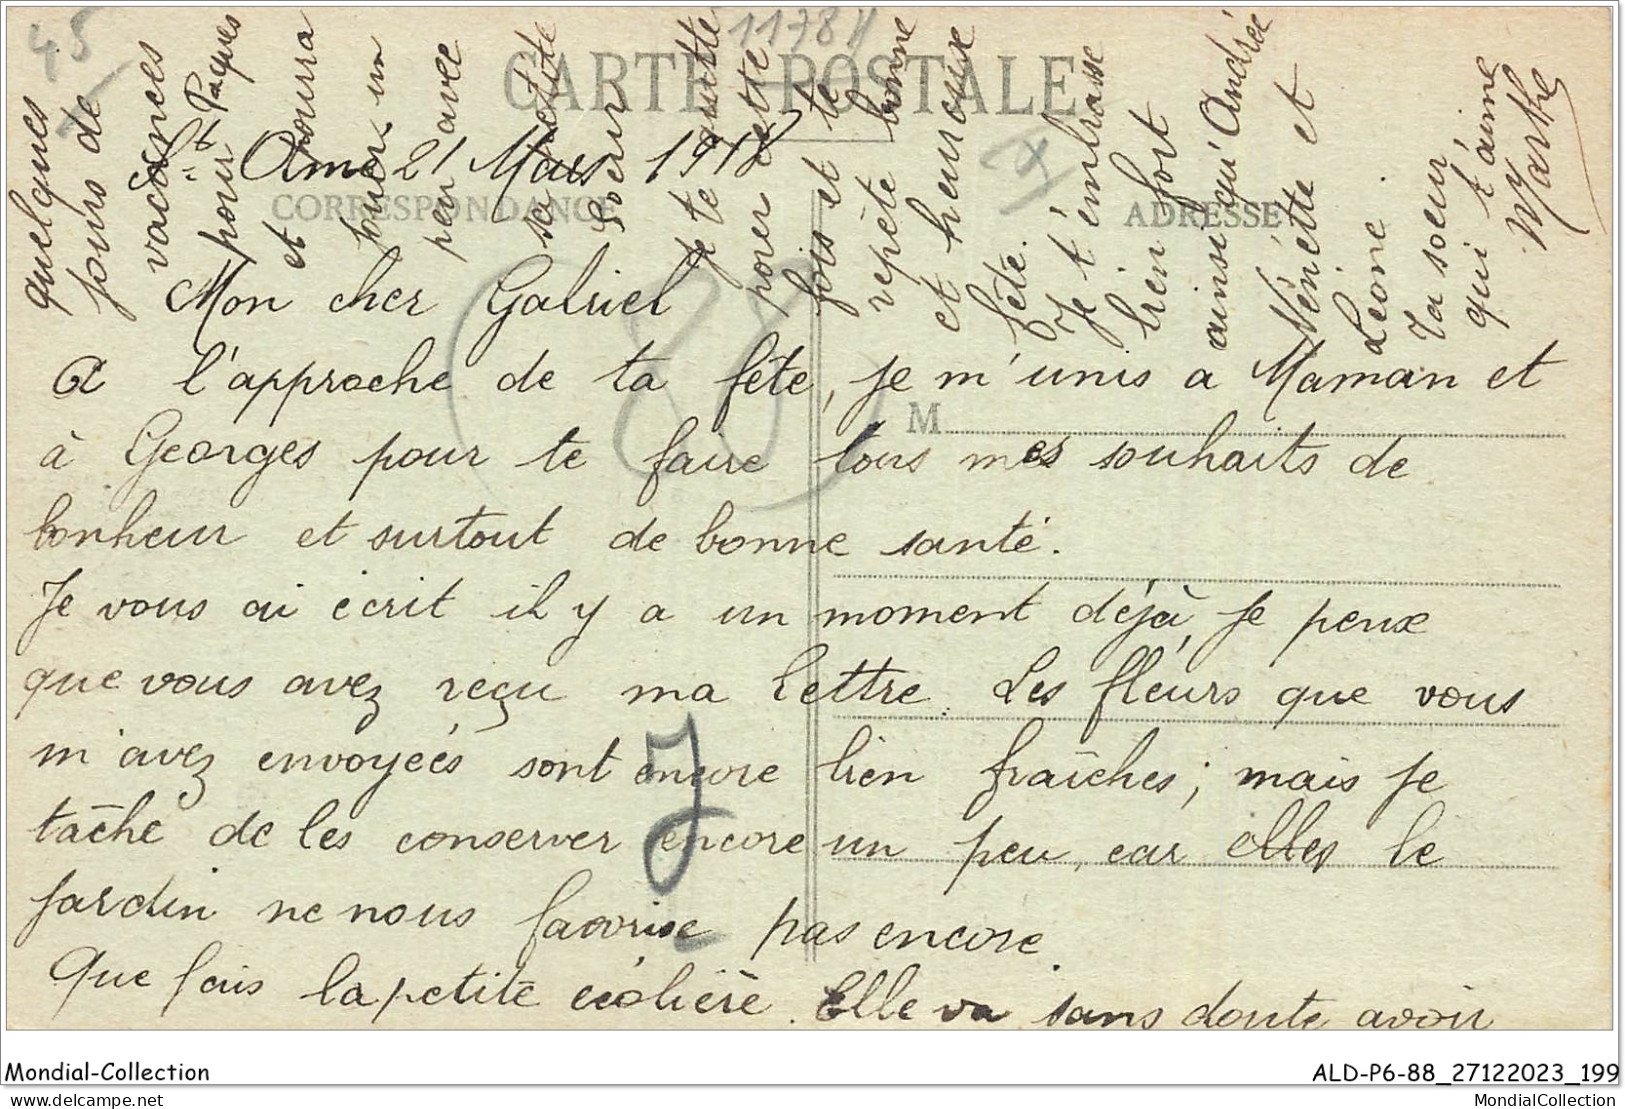 45
11784
CARTE POSTALE
CORRESPONDANCE
ADRESSE
M
St Amé 21 Mars 1918
Mon cher Gabriel
A l'approche de ta fête, je m'unis a Maman et
à Georges pour te faire tous mes souhaits de
bonheur et surtout de bonne santé.
Je vous ai écrit il y a un moment déjà, je peux
que vous avez reçu ma lettre. Les fleurs que vous
m'avez envoyées sont encore bien fraîches; mais je
tâche de les conserver encore un peu, car elles le
jardin ne nous favorise pas encore.
Que fais la petite écolière. Elle va sans doute avoir
quelques
jours de
vacances
pour Pâques
et pourra
jouer un
peu avec
sa petite
soeur
Je te quitte
pour cette
fois et te
repète bonne
et heureuse
fête.
Je t'embrasse
bien fort
ainsi qu'Andrée
Nénette et
Léonie
Ta soeur,
qui t'aime
Marthe
Mondial-Collection
ALD-P6-88_27122023_199
delcampe.net
MondialCollection